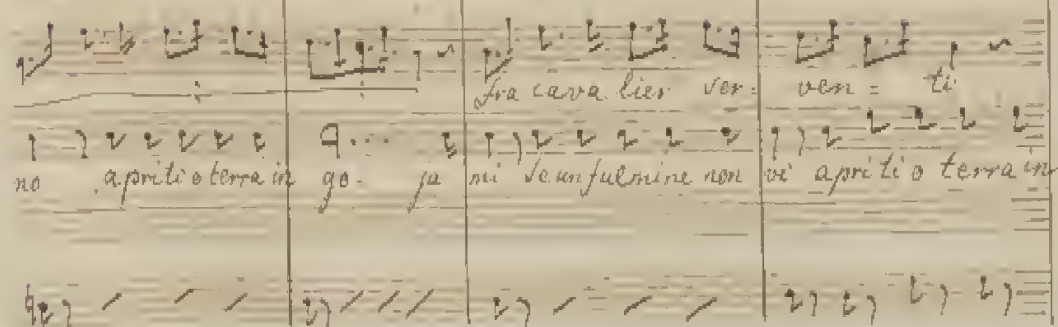 fra cava lier ser- ven = ti
no apriti o terra in go- ja mi se un fulmine non vi apriti o terra in